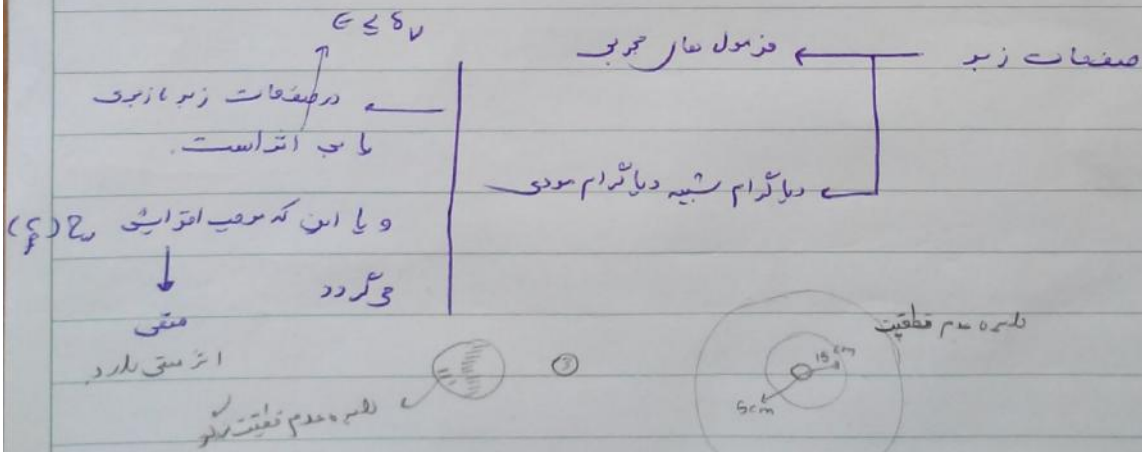 صفحات زبر
فرمول های تجربی
دیاگرام شبیه دیاگرام مودی
ϵ ≤ δν
در صفحات زبر یا زبری
یا بی اثر است.
و یا این که موجب افزایش
می گردد
منفی
اثر منفی دارد
دایره عدم قطعیت
15 cm
5cm
③
دایره عدم قطعیت